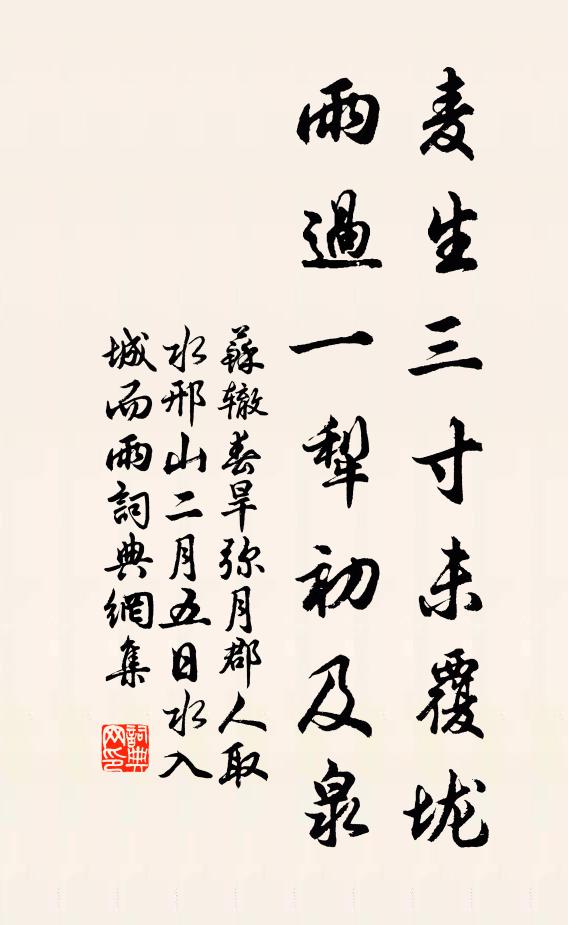 麦生三寸未覆垅
雨過一犁初及泉
蘇辙春旱弥月郡人取
水邢山二月五日水入
城而雨詞典網集
詞典网印